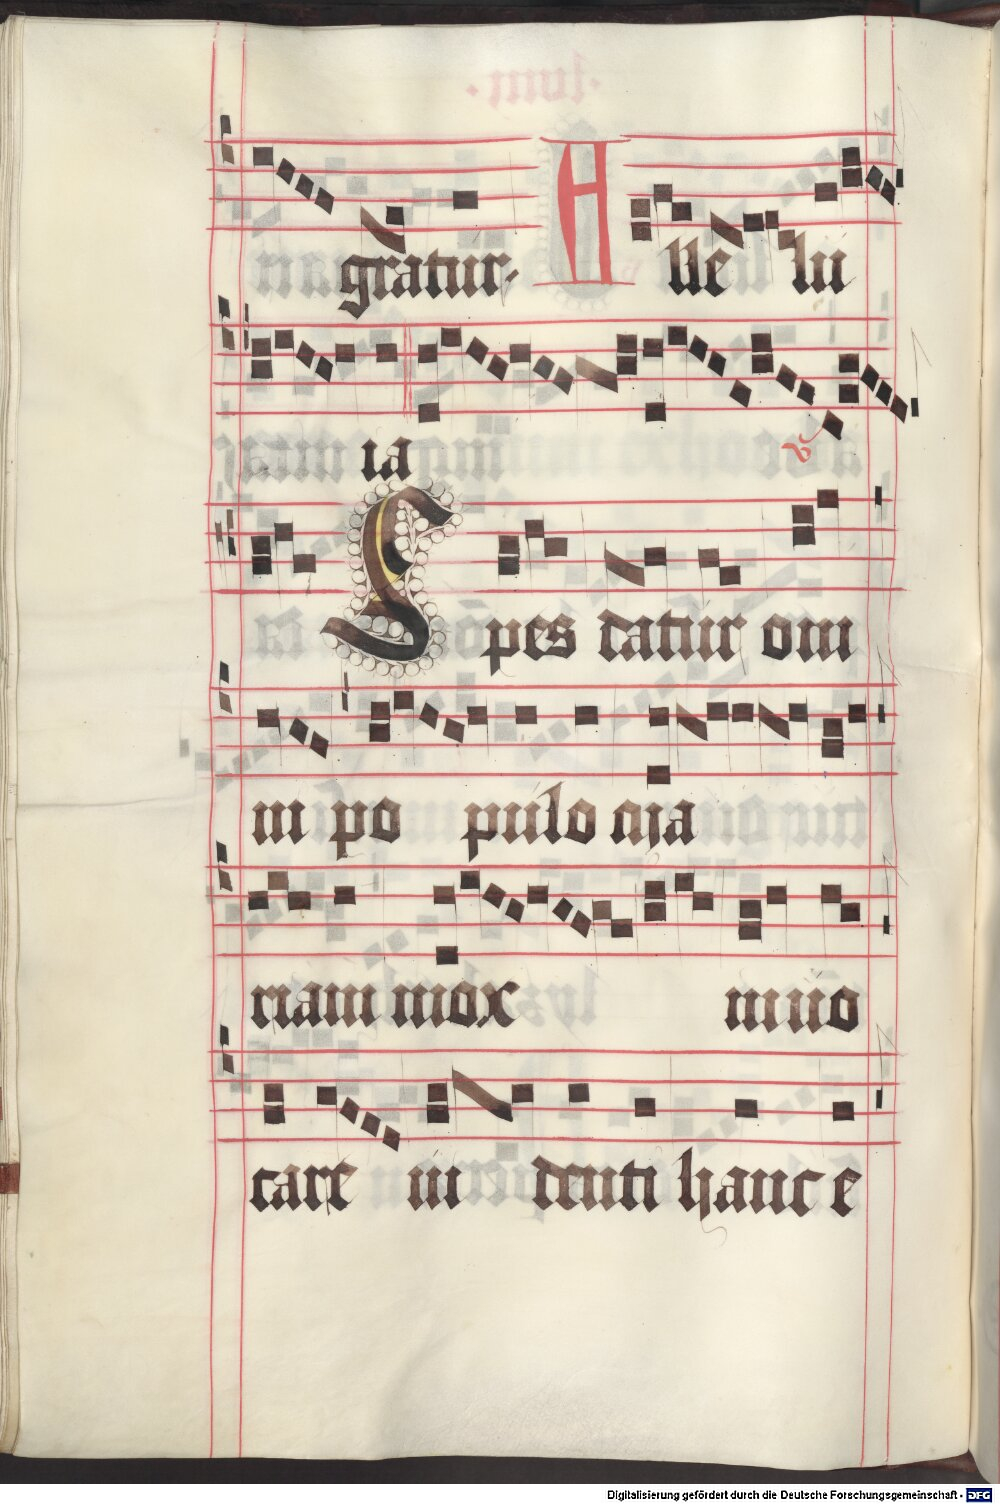 gratur. A lle lu
ia
℣
Spes datur om
ni po pulo aīa
riam mox inuo
care in denti hanc e
Digitalisierung gefördert durch die Deutsche Forschungsgemeinschaft - DFG